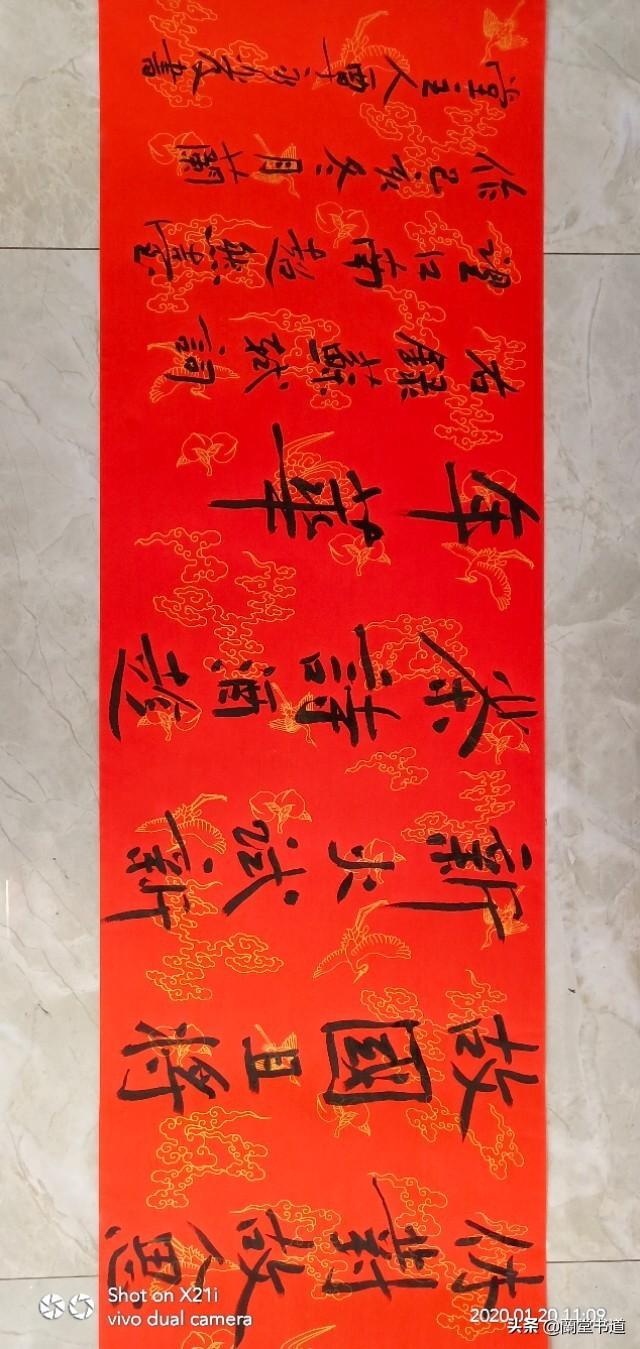 休對故人思
故國且將
新火试新
茶詩酒趁
年華
右錄蘇軾詞
望江南超然臺
作己亥冬月蘭
堂主人書
Shot on X21i
vivo dual camera
2020.01.20 11:09
头条 @蘭堂书道